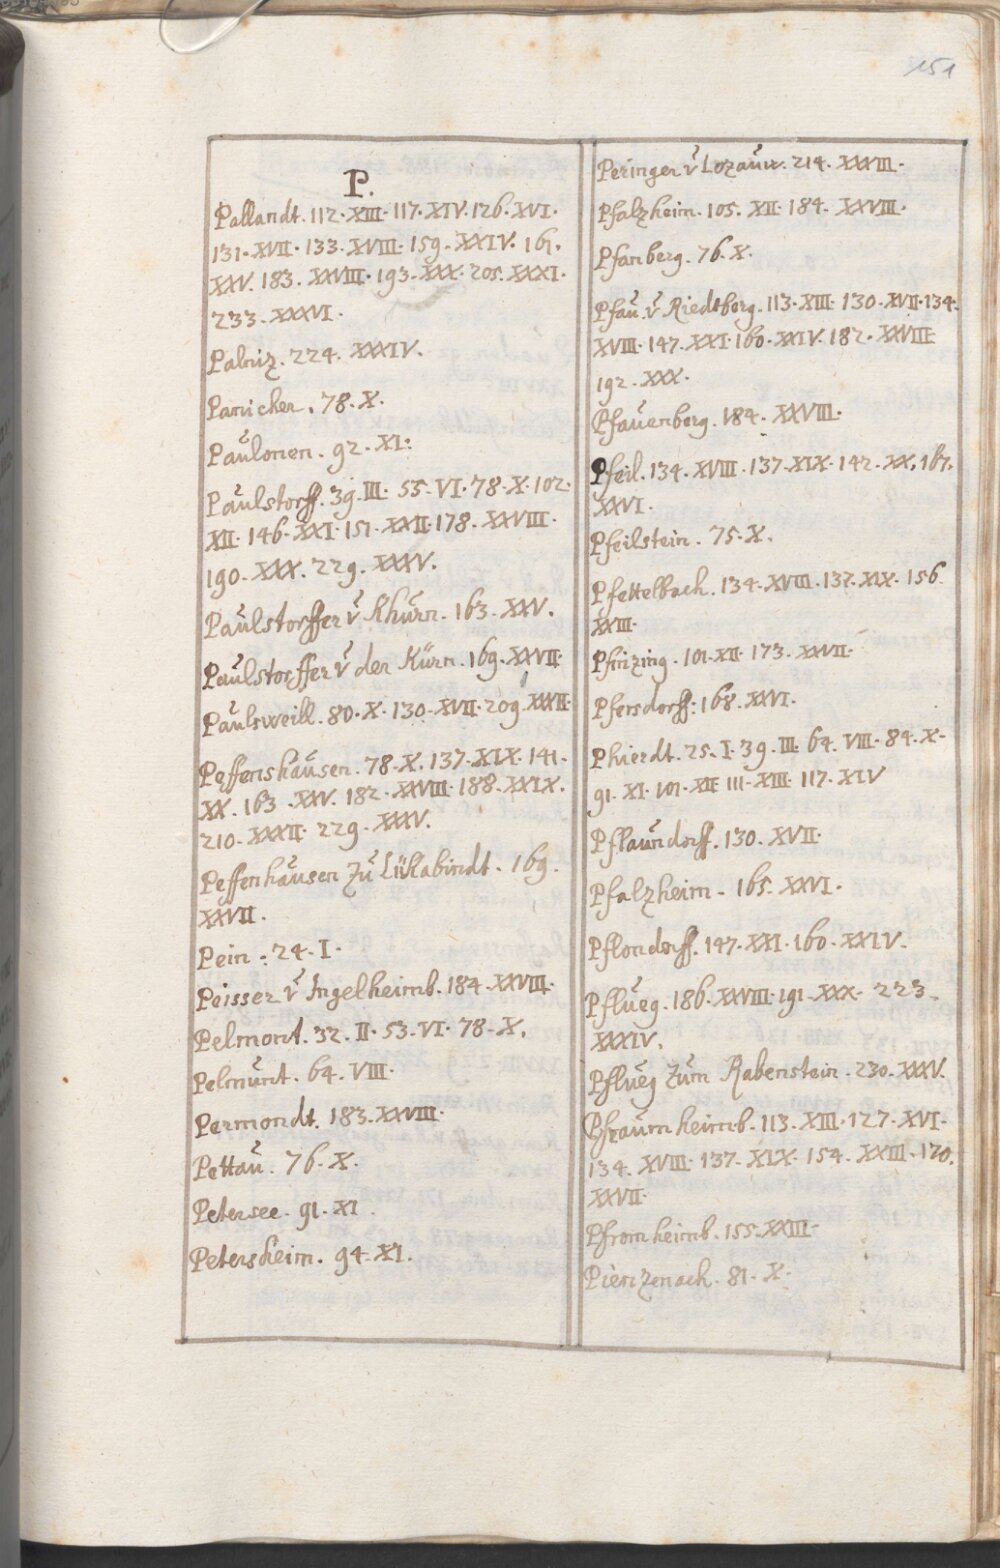 151
P.
Pallandt. 112. XIII. 117. XIV. 126. XVI.
131. XVII. 133. XVIII. 159. XXIV. 161.
XXV. 183. XXVIII. 193. XXX. 205. XXXI.
233. XXXVI.
Palniz. 224. XXXIV.
Panicher. 78. X.
Paulonen. 92. XI:
Paulstorff. 39. III. 55. VI. 78. X. 102.
XII. 146. XXI. 151. XXII. 178. XXVIII.
190. XXX. 229. XXXV.
Paulstorffer v̆ Khürn. 163. XXV.
Paulstorffer v̆ der Kürn. 169. XXVII.
Paulsweill. 80. X. 130. XVII. 209. XXXII.
Peffenshausen. 78. X. 137. XIX. 141.
XX. 163. XXV. 182. XXVIII. 188. XXIX.
210. XXXII. 229. XXXV.
Peffenhausen zu Lükabindt. 169.
XXVII.
Pein. 24. I.
Peisser v̆ Ingelheimb. 184. XXVIII.
Pelmont. 32. II. 53. VI. 78. X.
Pelmunt. 64. VIII.
Permondt. 183. XXVIII.
Pettau. 76. X.
Petersee. 91. XI.
Petersheim. 94. XI.
Peringer v̆ Lozauw. 214. XXXIII.
Pfalzheim. 105. XII. 184. XXVIII.
Pfanberg. 76. X.
Pfau v̆ Riedtberg. 113. XIII. 130. XVII. 134.
XVIII. 147. XXI. 160. XXIV. 182. XXVIII.
192. XXX.
Pfauenberg. 184. XXVIII.
Pfeil. 134. XVIII. 137. XIX. 142. XX. 167.
XXVI.
Pfeilstein. 75. X.
Pfettelbach. 134. XVIII. 137. XIX. 156.
XXIII.
Pfinzing. 101. XII. 173. XXVII.
Pfersdorff: 168. XXVI.
Phierdt. 25. I. 39. III. 64. VIII. 84. X.
91. XI. 101. XII. 111. XIII. 117. XIV
Pflaundorff. 130. XVII.
Pfalzheim. 165. XXVI.
Pflondorff. 147. XXI. 160. XXIV.
Pflueg. 186. XXVIII. 191. XXX. 223.
XXXIV.
Pflueg zum Rabenstein. 230. XXXV.
Pfraumheimb. 113. XIII. 127. XVI.
134. XVIII. 137. XIX. 154. XXIII. 170.
XXVII.
Pfromheimb. 155. XXIII.
Pienzenach. 81. X.